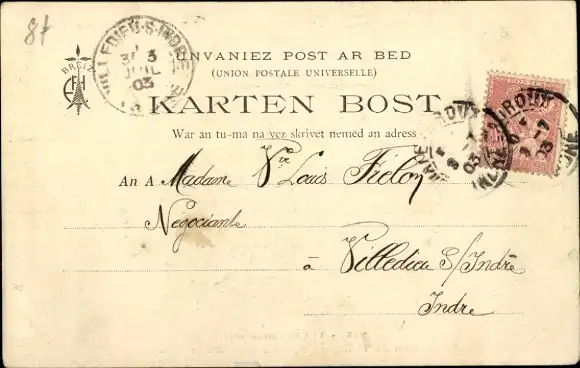 87
VILLEDIEU-S-INDRE
3E 3
JUIL
03
UNVANIEZ POST AR BED
(UNION POSTALE UNIVERSELLE)
KARTEN BOST
War an tu-ma na vez skrivet nemed an adress
An A Madame Vve Louis Fiélon
Negociante
à Villedieu S/Indre
Indre